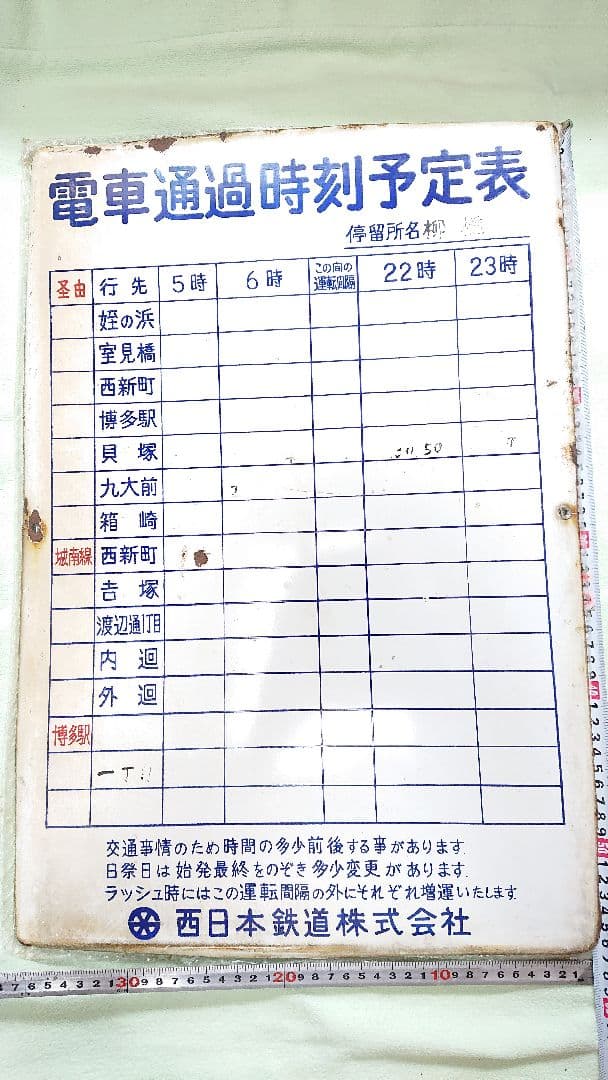 電車通過時刻予定表
停留所名 柳
圣由 行先 5時 6時 この間の運転間隔 22時 23時
姪の浜
室見橋
西新町
博多駅
貝塚 50
九大前
箱崎
城南線 西新町
吉塚
渡辺通1丁目
内迴
外迴
博多駅
交通事情のため時間の多少前後する事があります.
日祭日は始発最終をのぞき多少変更があります.
ラッシュ時にはこの運転間隔の外にそれぞれ増運いたします.
西日本鉄道株式会社
7 6 5 4 3 2 1 30 9 8 7 6 5 4 3 2 1 20 9 8 7 6 5 4 3 2 1 10 9 8 7 6 5 4 3 2 1